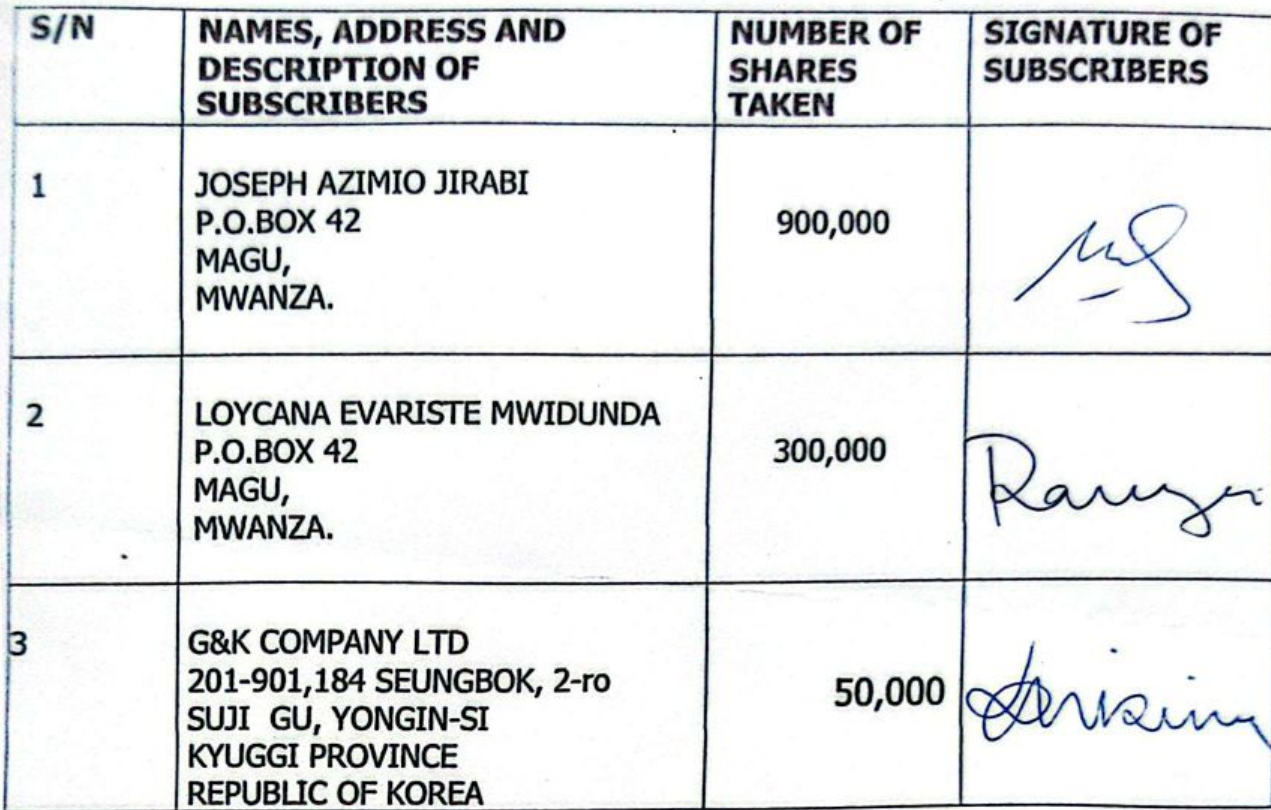 S/N NAMES, ADDRESS AND DESCRIPTION OF SUBSCRIBERS NUMBER OF SHARES TAKEN SIGNATURE OF SUBSCRIBERS
1 JOSEPH AZIMIO JIRABI
P.O.BOX 42 900,000
MAGU,
MWANZA.
2 LOYCANA EVARISTE MWIDUNDA
P.O.BOX 42 300,000
MAGU,
MWANZA.
3 G&K COMPANY LTD
201-901,184 SEUNGBOK, 2-ro 50,000
SUJI GU, YONGIN-SI
KYUGGI PROVINCE
REPUBLIC OF KOREA